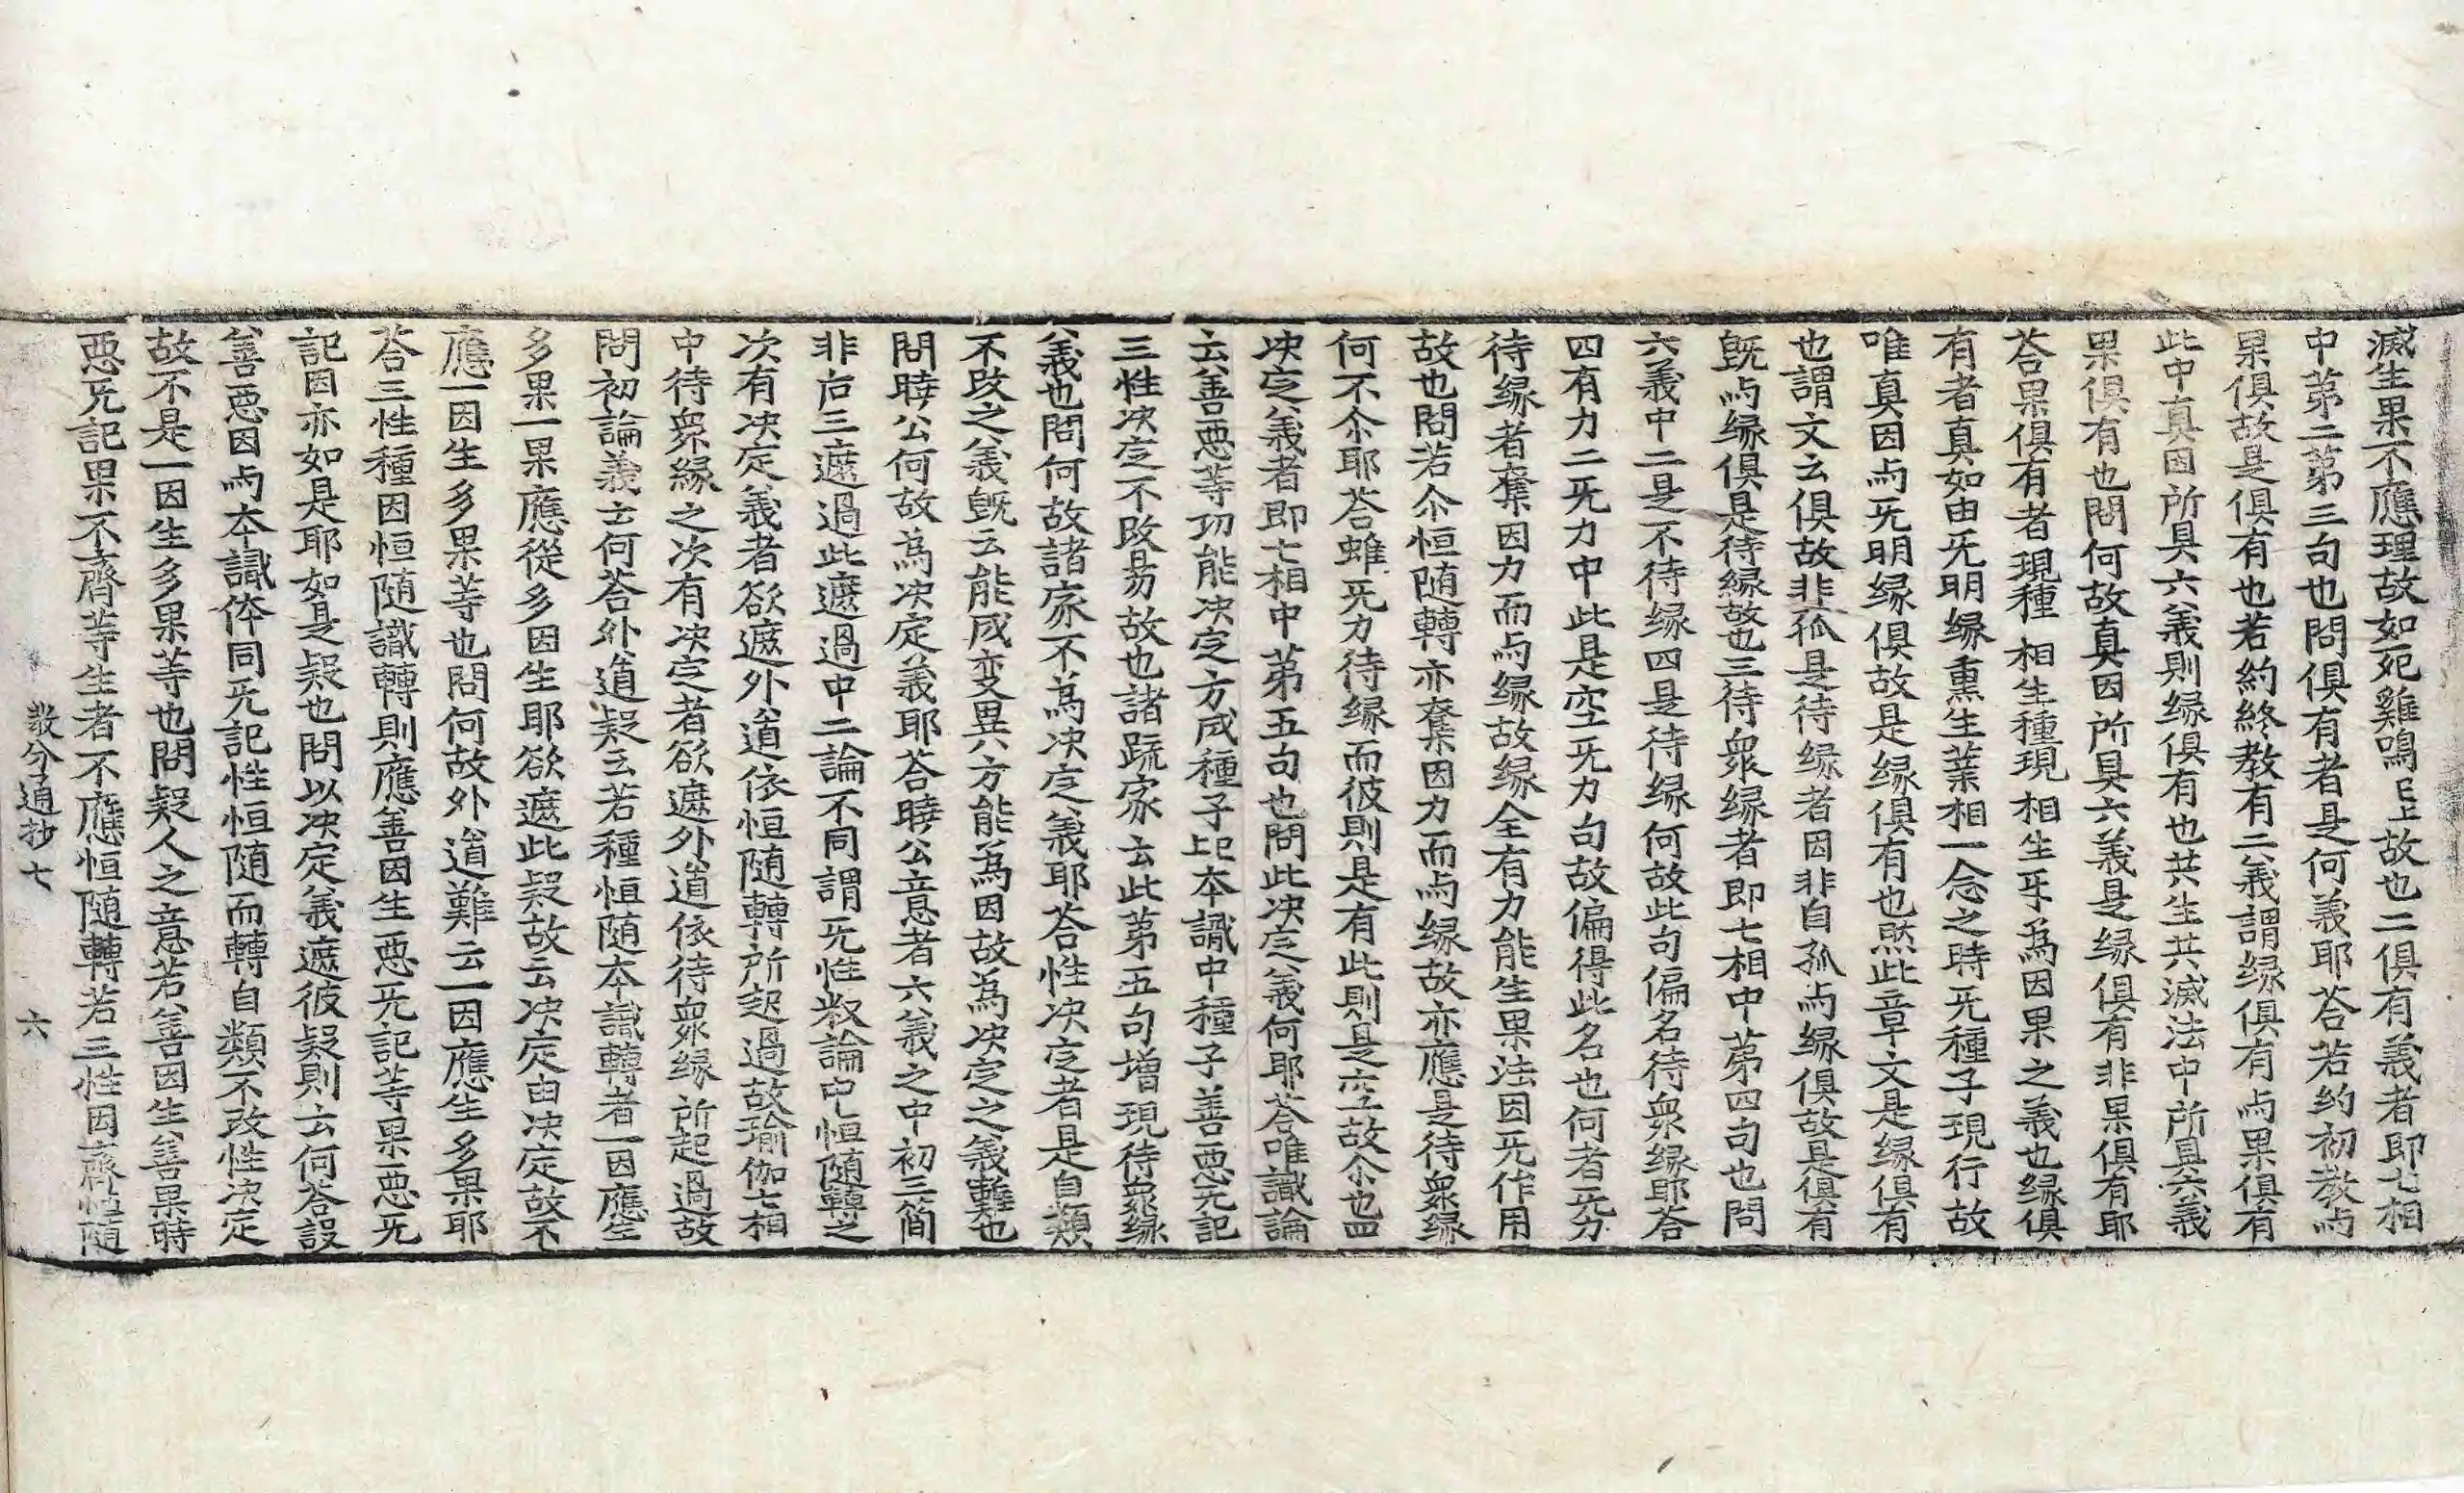 滅生果不應理故如死雞鳴已上故也二俱有義者即七相
中苐二苐三句也問俱有者是何義耶荅若約初教与
果俱故是俱有也若約終教有二義謂縁俱有与果俱有
此中真因所具六義則縁俱有也共生共滅法中所具六義
果俱有也問何故真因所具六義是縁俱有非果俱有耶
荅果俱有者現種相生種現相生互爲因果之義也縁俱
有者真如由旡明縁熏生業相一念之時旡種子現行故
唯真因与旡明縁俱故是縁俱有也然此章文是縁俱有
也謂文云俱故非孤是待縁者因非自孤与縁俱故是俱有
既与縁俱是待縁故也三待衆縁者即七相中苐四句也問
六義中二是不待縁四是待縁何故此句偏名待衆縁耶荅
四有力二旡力中此是空旡力句故偏得此名也何者旡力
待縁者奪因力而与縁故縁全有力能生果法因旡作用
故也問若尒恒随轉亦奪因力而与縁故亦應是待衆縁
何不尒耶荅雖旡力待縁而彼則是有此則是空故尒也四
决定義者即七相中苐五句也問此决定義何耶荅唯識論
云善惡等功能决定方成種子此本識中種子善惡旡記
三性决定不改易故也諸䟽家云此苐五句增現待衆縁
義也問何故諸家不爲决定義耶荅性决定者是自類
不改之義旣云能成变異方能爲因故爲决定之義難也
問曉公何故爲决定義耶荅曉公意者六義之中初三簡
非后三遮過此遮過中二論不同謂旡性釈論中恒随轉之
次有决定義者欲遮外道依恒随轉所起過故瑜伽七相
中待衆縁之次有决定者欲遮外道依待衆縁所起過故
問初論義云何荅外道疑云若種恒随本識轉者一因應生
多果一果應從多因生耶欲遮此疑故云决定由决定故不
應一因生多果等也問何故外道難云一因應生多果耶
荅三性種因恒随識轉則應善因生惡旡記等果惡旡
記因亦如是耶如是疑也問以决定義遮彼疑則云何荅設
善惡因与本識体同旡記性恒随而轉自類不改性决定
故不是一因生多果等也問疑人之意若善因生善果時
惡旡記果不齊等生者不應恒随轉若三性因齊恒随
教分通抄七　六